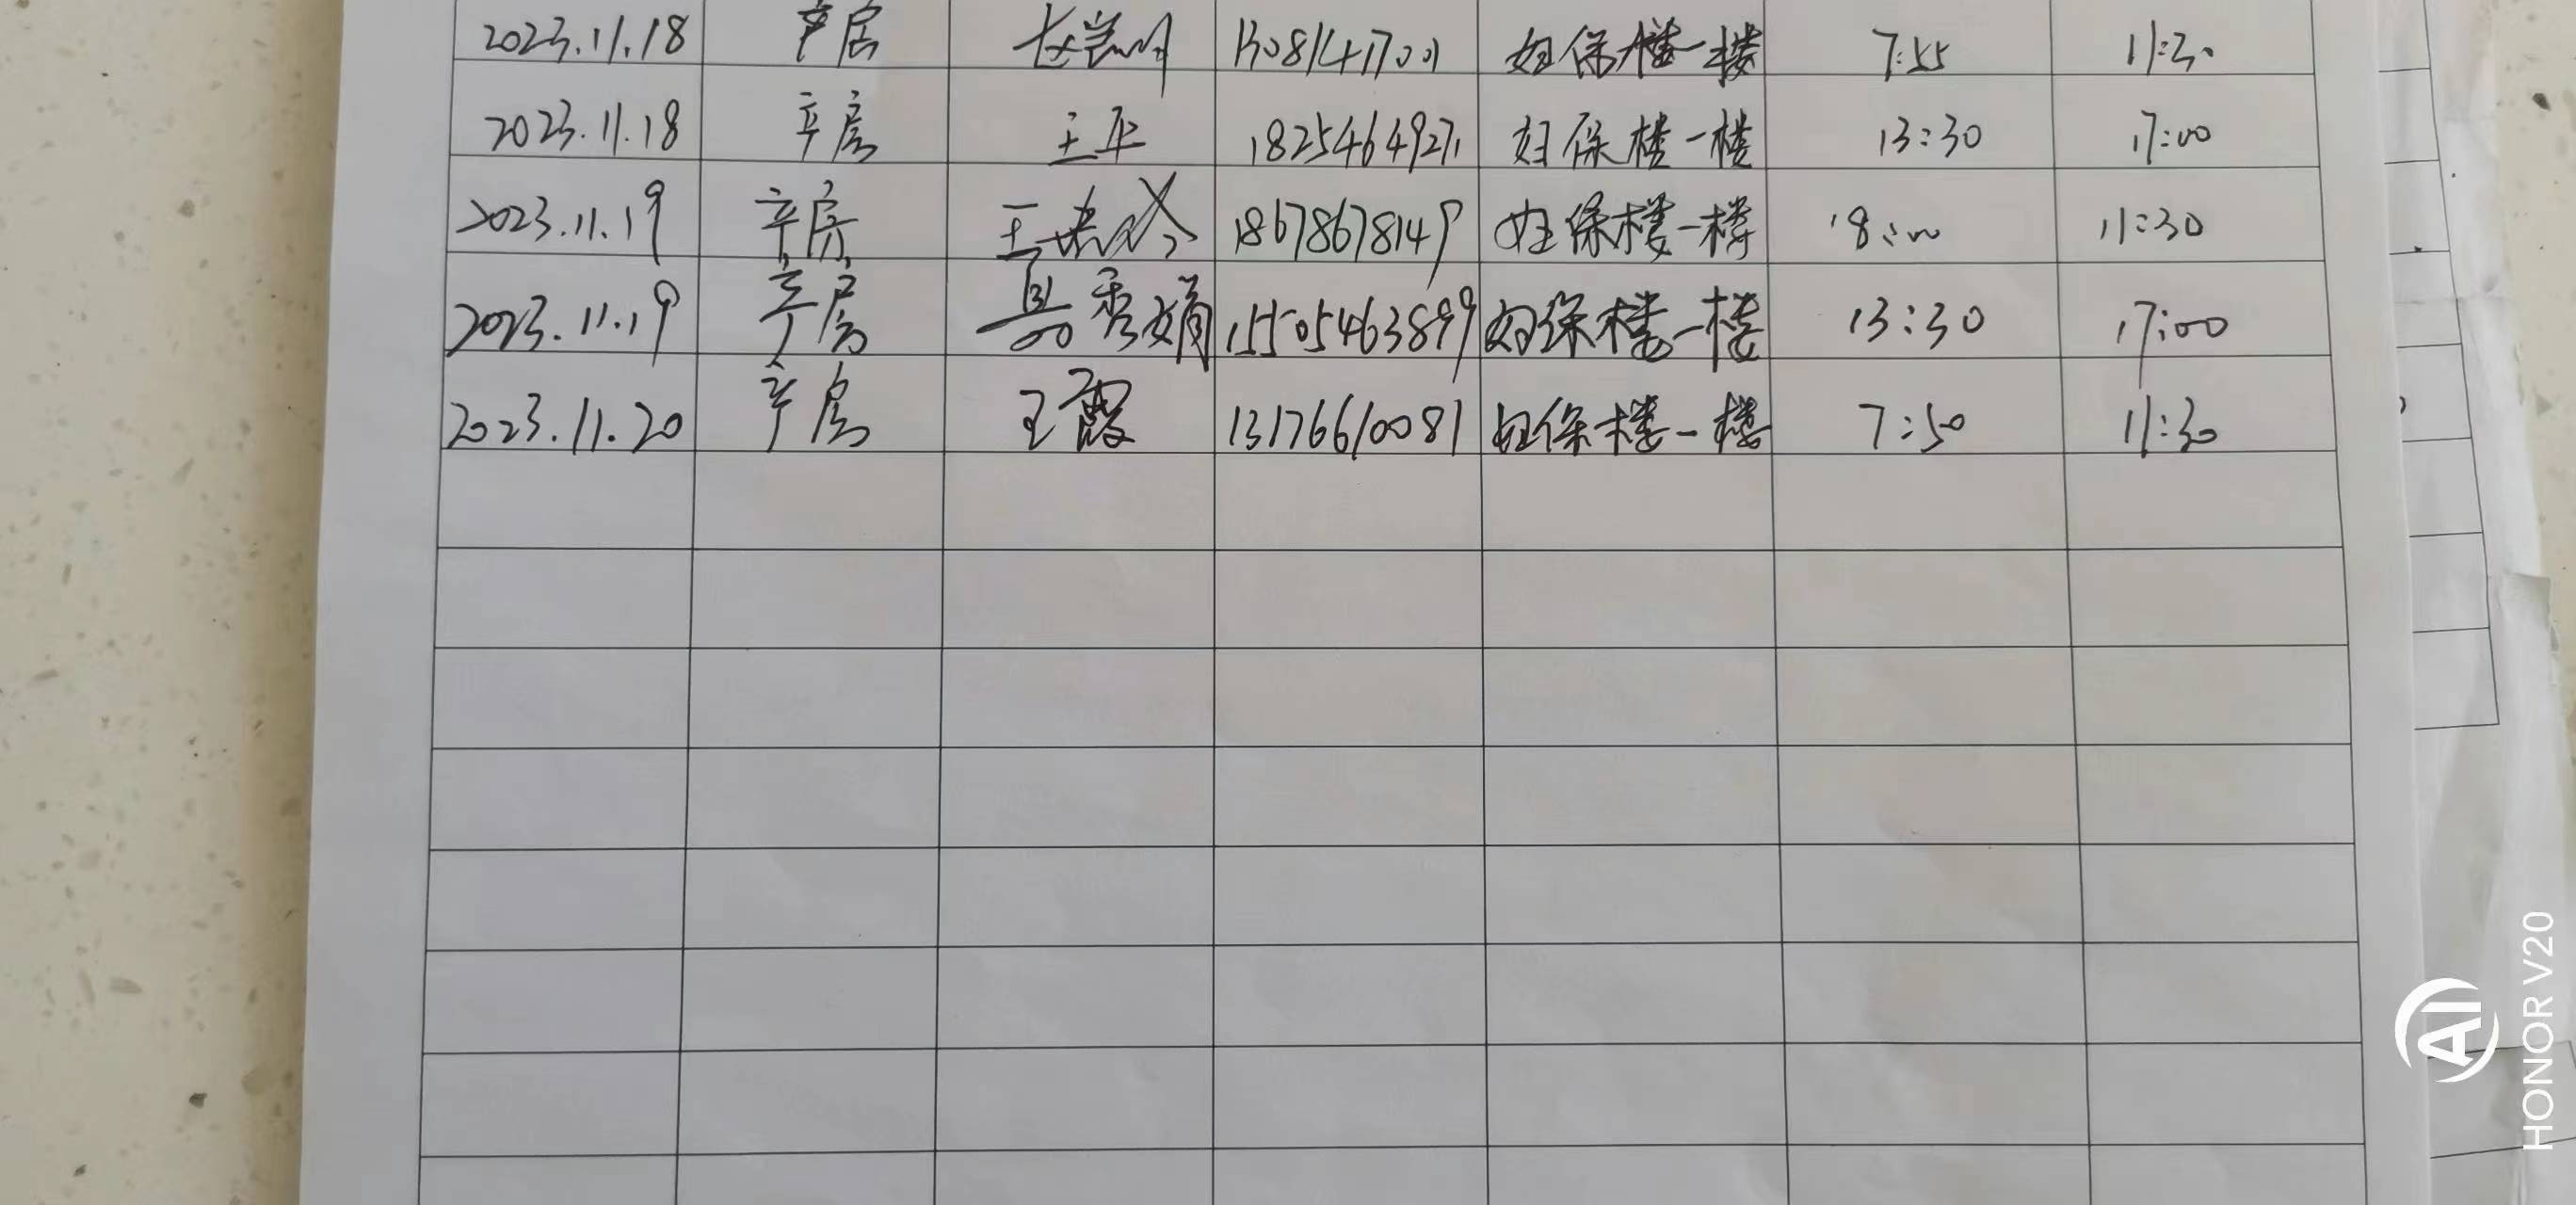 2023.11.18 产房 妇保楼一楼 7:55 11:30
2023.11.18 产房 王平 18254649271 妇保楼一楼 13:30 17:00
2023.11.19 产房 18678678149 妇保楼一楼 8:00 11:30
2023.11.19 产房 秀娟 15505463899 妇保楼一楼 13:30 17:00
2023.11.20 产房 王霞 13176610081 妇保楼一楼 7:50 11:30
AI
HONOR V20